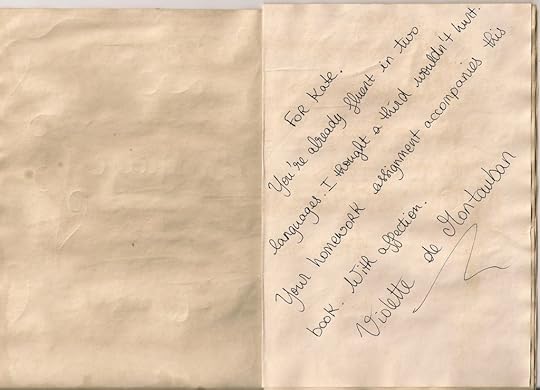 For Kate.
You're already fluent in two
languages. I thought a third wouldn't hurt.
Your homework assignment accompanies this
book. With affection.
Violette de Montauban